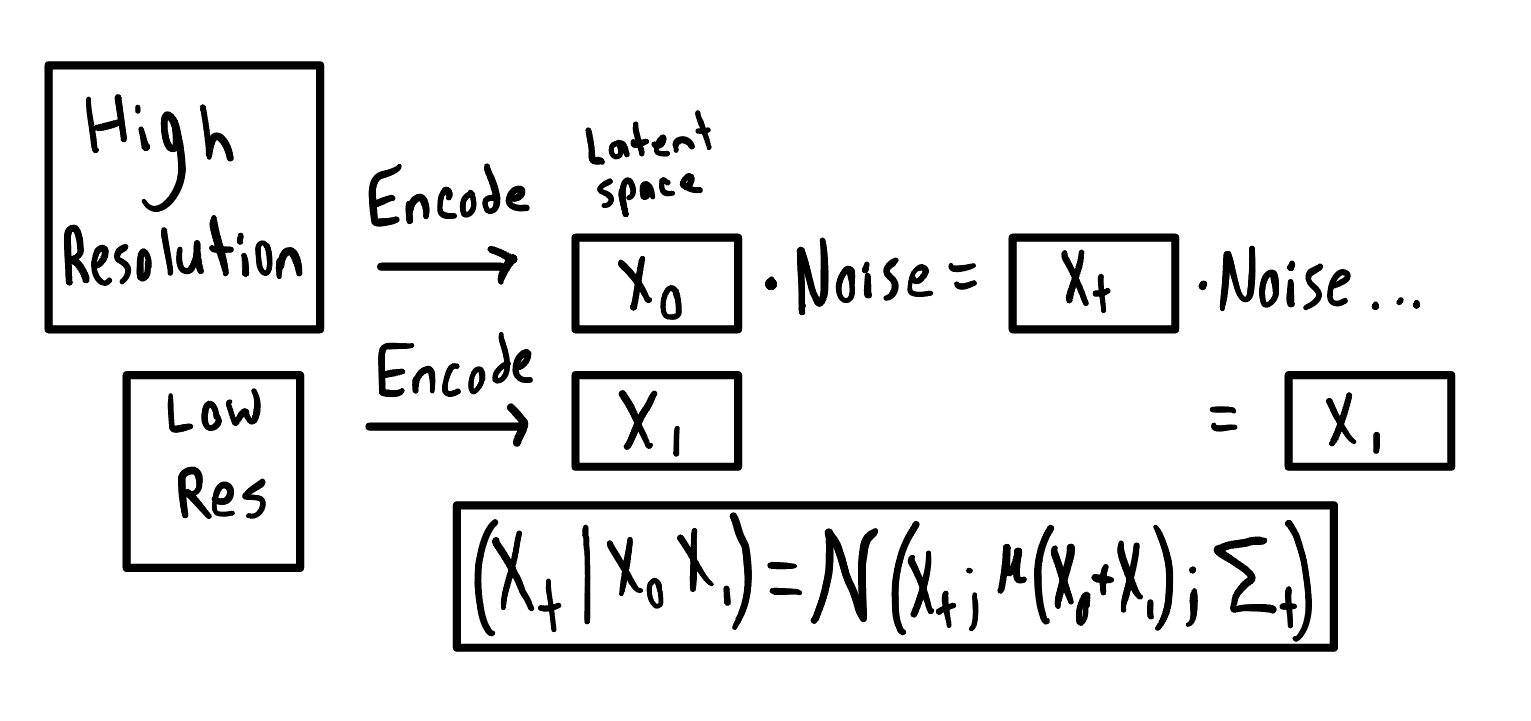 High
Resolution
Encode
Latent
space
X₀ · Noise = Xₜ · Noise...
Low
Res
Encode
X₁
= X₁
(Xₜ | X₀ X₁) = N(Xₜ; μ(X₀+X₁); Σₜ)